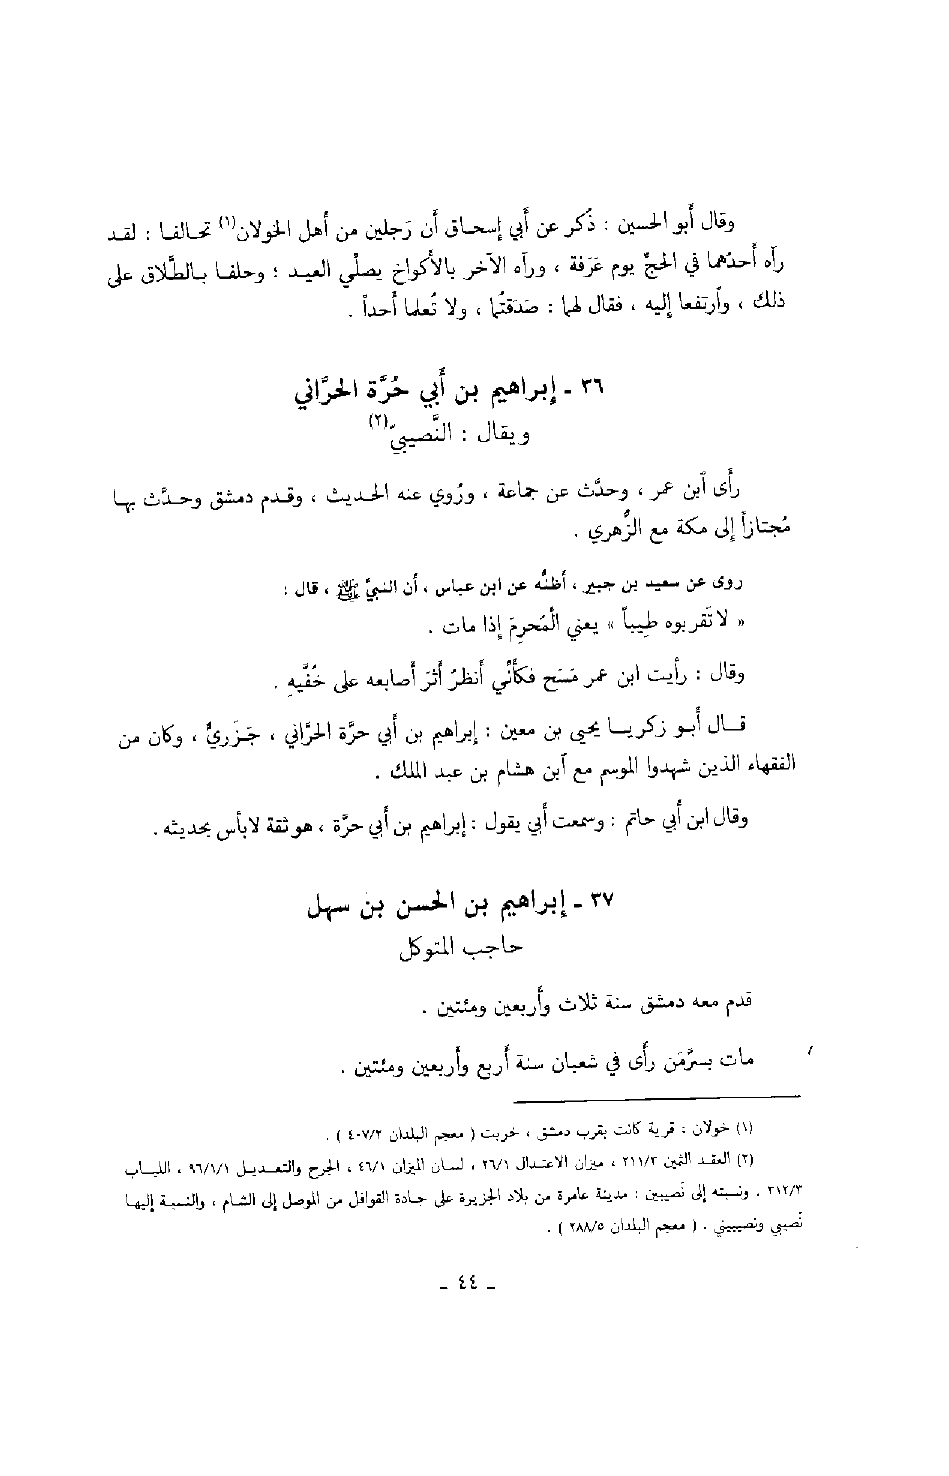 وقال أبو الحسين : ذُكر عن أبي إسحاق أن رَجلين من أهل الخولان(١) تحالفا : لقد
رآه أحدُهما في الحجِّ يوم عَرَفة ، ورآه الآخر بالأكواخ يصلّي العيد ؛ وحلفا بالطَّلاق على
ذلك ، وٱرتفعا إليه ، فقال لهما : صَدَقتُما ، ولا تُعلما أحداً .
٣٦ - إبراهيم بن أبي حُرَّة الحَرَّاني
ويقال : النَّصيبيّ(٢)
رأى ٱبن عمر ، وحدَّث عن جماعة ، ورُوي عنه الحديث ، وقدم دمشق وحدَّث بها
مُجتازاً إلى مكة مع الزُّهري .
روى عن سعيد بن جبير ، أظنُّه عن ابن عباس ، أن النبيَّ ﷺ ، قال :
« لا تَقربوه طِيباً » يعني الْمُحرِمَ إذا مات .
وقال : رأيت ابن عمر مَسَح فكأنِّي أنظرُ أثرَ أصابعه على خُفَّيهِ .
قال أبو زكريا يحيى بن معين : إبراهيم بن أبي حرَّة الحرَّاني ، جَزَريٌّ ، وكان من
الفقهاء الذين شهدوا الموسم مع ٱبن هشام بن عبد الملك .
وقال ابن أبي حاتم : وسمعت أبي يقول : إبراهيم بن أبي حرَّة ، هو ثقة لابأس بحديثه .
٣٧ - إبراهيم بن الحسن بن سهل
حاجب المتوكل
قدم معه دمشق سنة ثلاث وأربعين ومئتين .
مات بسرَّمَن رأى في شعبان سنة أربع وأربعين ومئتين .
(١) خولان : قرية كانت بقرب دمشق ، خربت ( معجم البلدان ٤٠٧/٢ ) .
(٢) العقد الثمين ٢١١/٣ ، ميزان الاعتدال ٢٦/١ ، لسان الميزان ٤٦/١ ، الجرح والتعديل ٩٦/١/١ ، اللباب
٣١٢/٣ . ونسبته إلى نَصيبين : مدينة عامرة من بلاد الجزيرة على جادة القوافل من الموصل إلى الشام ، والنسبة إليها
نَصيبي ونصيبيني . ( معجم البلدان ٢٨٨/٥ ) .
- ٤٤ -